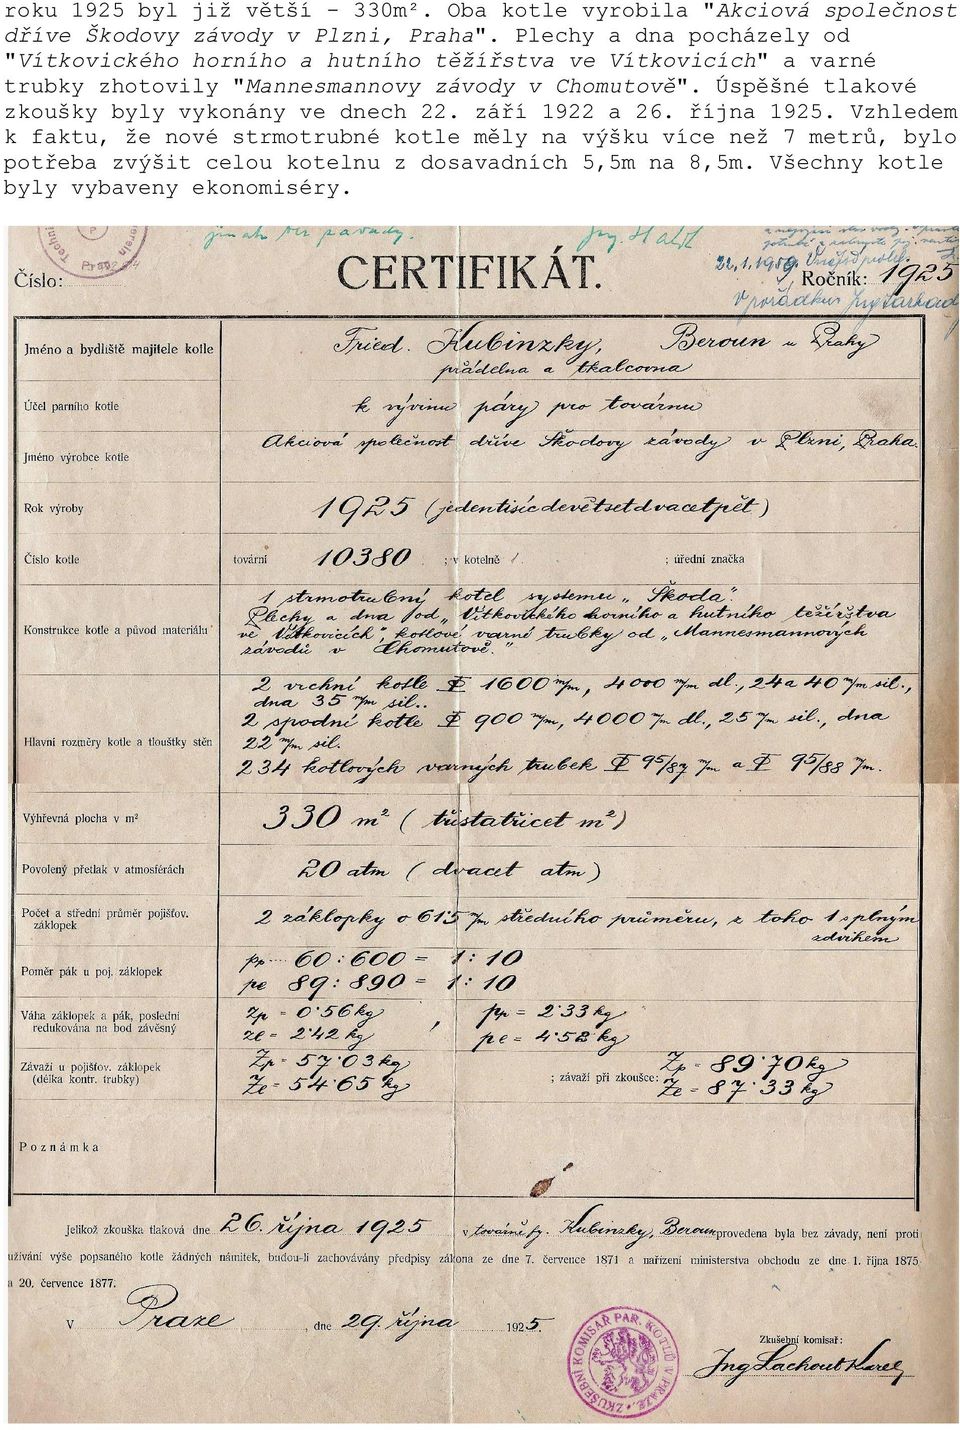 roku 1925 byl již větší - 330m². Oba kotle vyrobila "Akciová společnost
dříve Škodovy závody v Plzni, Praha". Plechy a dna pocházely od
"Vítkovického horního a hutního těžířstva ve Vítkovicích" a varné
trubky zhotovily "Mannesmannovy závody v Chomutově". Úspěšné tlakové
zkoušky byly vykonány ve dnech 22. září 1922 a 26. října 1925. Vzhledem
k faktu, že nové strmotrubné kotle měly na výšku více než 7 metrů, bylo
potřeba zvýšit celou kotelnu z dosavadních 5,5m na 8,5m. Všechny kotle
byly vybaveny ekonomiséry.
jinak bez závady.
Číslo: CERTIFIKÁT. Ročník: 1925
22.1.1959
V pořádku
Jméno a bydliště majitele kotle Fried. Kubinzky, Beroun u Prahy
přádelna a tkalcovna
Účel parního kotle k vývinu páry pro továrnu
Jméno výrobce kotle Akciová společnost dříve Škodovy závody v Plzni, Praha.
Rok výroby 1925 (jedentisícdevětsetdvacetpět)
Číslo kotle tovární 10380 ; v kotelně 1. ; úřední značka
Konstrukce kotle a původ materiálu
1 strmotrubný kotel systemu „Škoda".
Plechy a dna od „Vítkovického horního a hutního težířstva
ve Vítkovicích", kotlové varné trubky od „Mannesmannových
závodů v Chomutově."
Hlavní rozměry kotle a tloušťky stěn
2 vrchní kotle Φ 1600 m/m, 4000 m/m dl., 24 a 40 m/m sil.,
dna 35 m/m sil..
2 spodní kotle Φ 900 m/m, 4000 m/m dl., 25 m/m sil., dna
22 m/m sil.
234 kotlových varných trubek Φ 95/87 m/m a Φ 95/88 m/m.
Výhřevná plocha v m² 330 m² (třistatřicet m²)
Povolený přetlak v atmosférách 20 atm (dvacet atm)
Počet a střední průměr pojišťov. záklopek 2 záklopky o 61·5 m/m středního průměru, z toho 1 s plným
zdvihem
Poměr pák u poj. záklopek pp 60 : 600 = 1 : 10
pe 89 : 890 = 1 : 10
Váha záklopek a pák, poslední
redukována na bod závěsný
Zp = 0·56 kg pp = 2·33 kg
ze = 2·42 kg , pe = 4·52 kg
Závaží u pojišťov. záklopek
(délka kontr. trubky)
Zp = 57·03 kg ; závaží při zkoušce: Zp = 89·70 kg
Ze = 54·65 kg Ze = 87·33 kg
Poznámka
Jelikož zkouška tlaková dne 26. října 1925 v továrně fy. Kubinzky, Beroun provedena byla bez závady, není proti
užívání výše popsaného kotle žádných námitek, budou-li zachovávány předpisy zákona ze dne 7. července 1871 a nařízení ministerstva obchodu ze dne 1. října 1875
a 20. července 1877.
V Praze , dne 29. října 1925.
Zkušební komisař:
Ing Lachout Karel
ZKUŠEBNÍ KOMISAŘ PAR. KOTLŮ V PRAZE